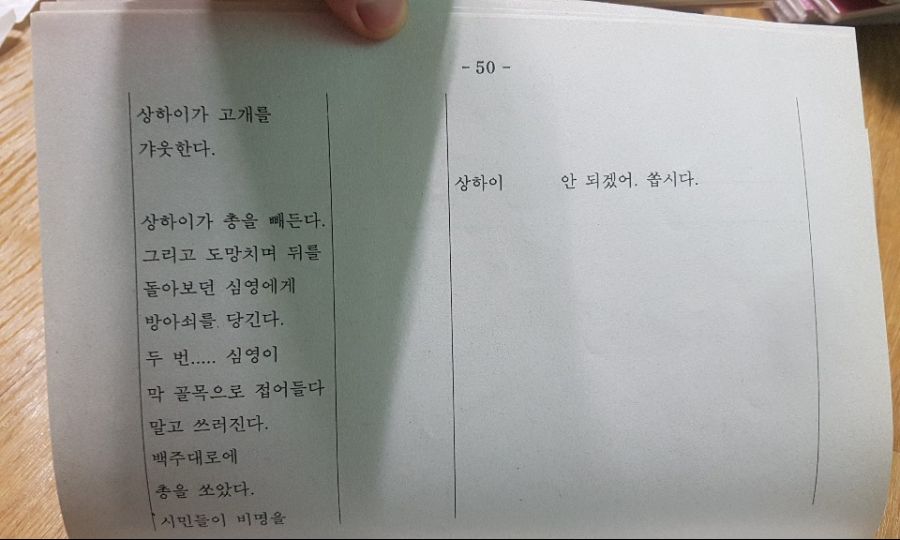 - 50 -
상하이가 고개를
갸웃한다.
상하이 안 되겠어. 쏩시다.
상하이가 총을 빼든다.
그리고 도망치며 뒤를
돌아보던 심영에게
방아쇠를 당긴다.
두 번..... 심영이
막 골목으로 접어들다
말고 쓰러진다.
백주대로에
총을 쏘았다.
시민들이 비명을